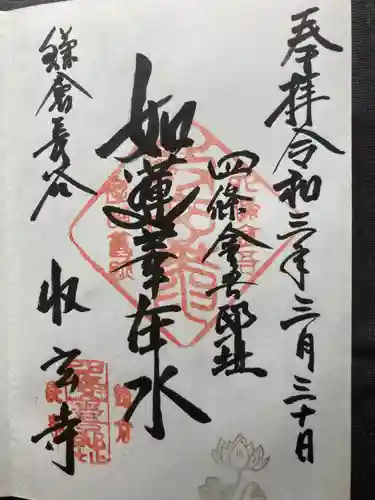 奉拝令和三年三月三十日
四條金吾邸址
如蓮華在水
鎌倉長谷
收玄寺